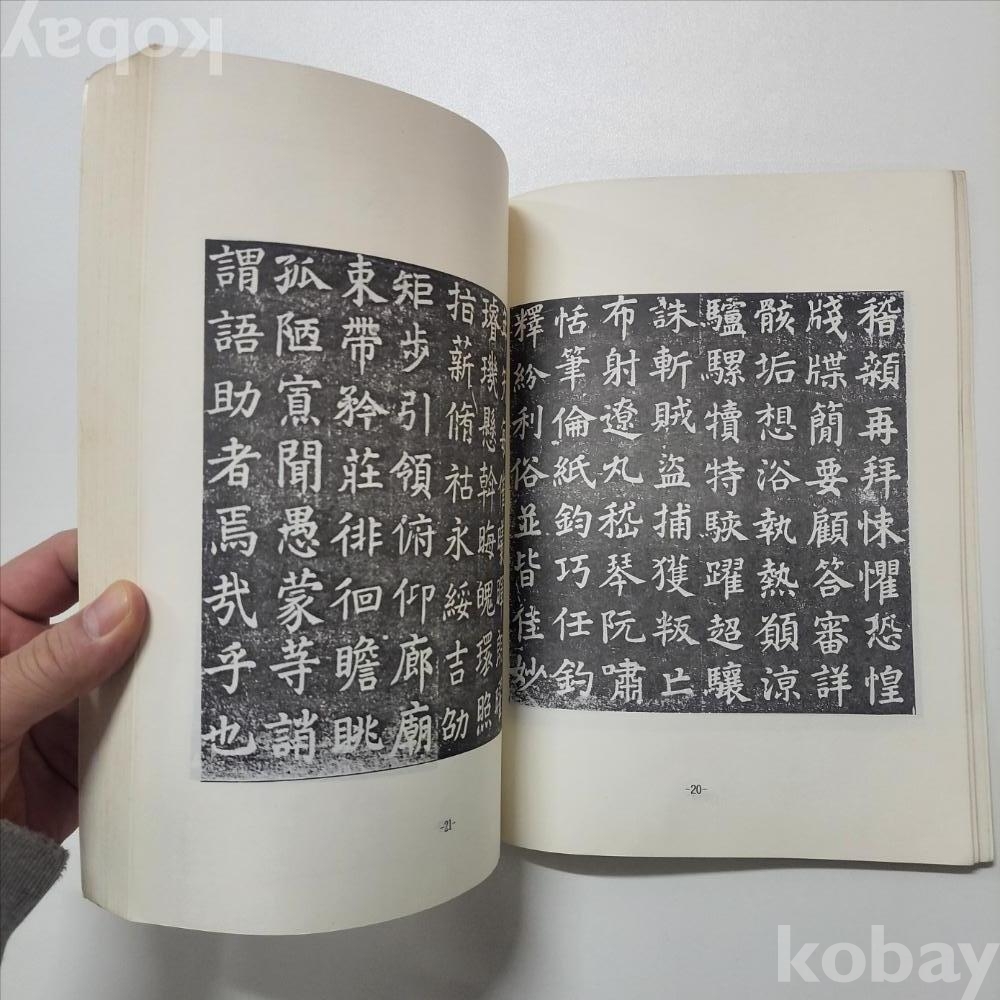 稽顙再拜悚懼恐惶
牋牒簡要顧答審詳
骸垢想浴執熱願涼
驢騾犢特駭躍超驤
誅斬賊盜捕獲叛亡
布射遼丸嵇琴阮嘯
恬筆倫紙鈞巧任釣
釋紛利俗並皆佳妙
-20-
璿璣懸斡晦魄環照
指薪脩祜永綏吉劭
矩步引領俯仰廊廟
束帶矜莊徘徊瞻眺
孤陋寡聞愚蒙等誚
謂語助者焉哉乎也
-21-
kobay
kobay